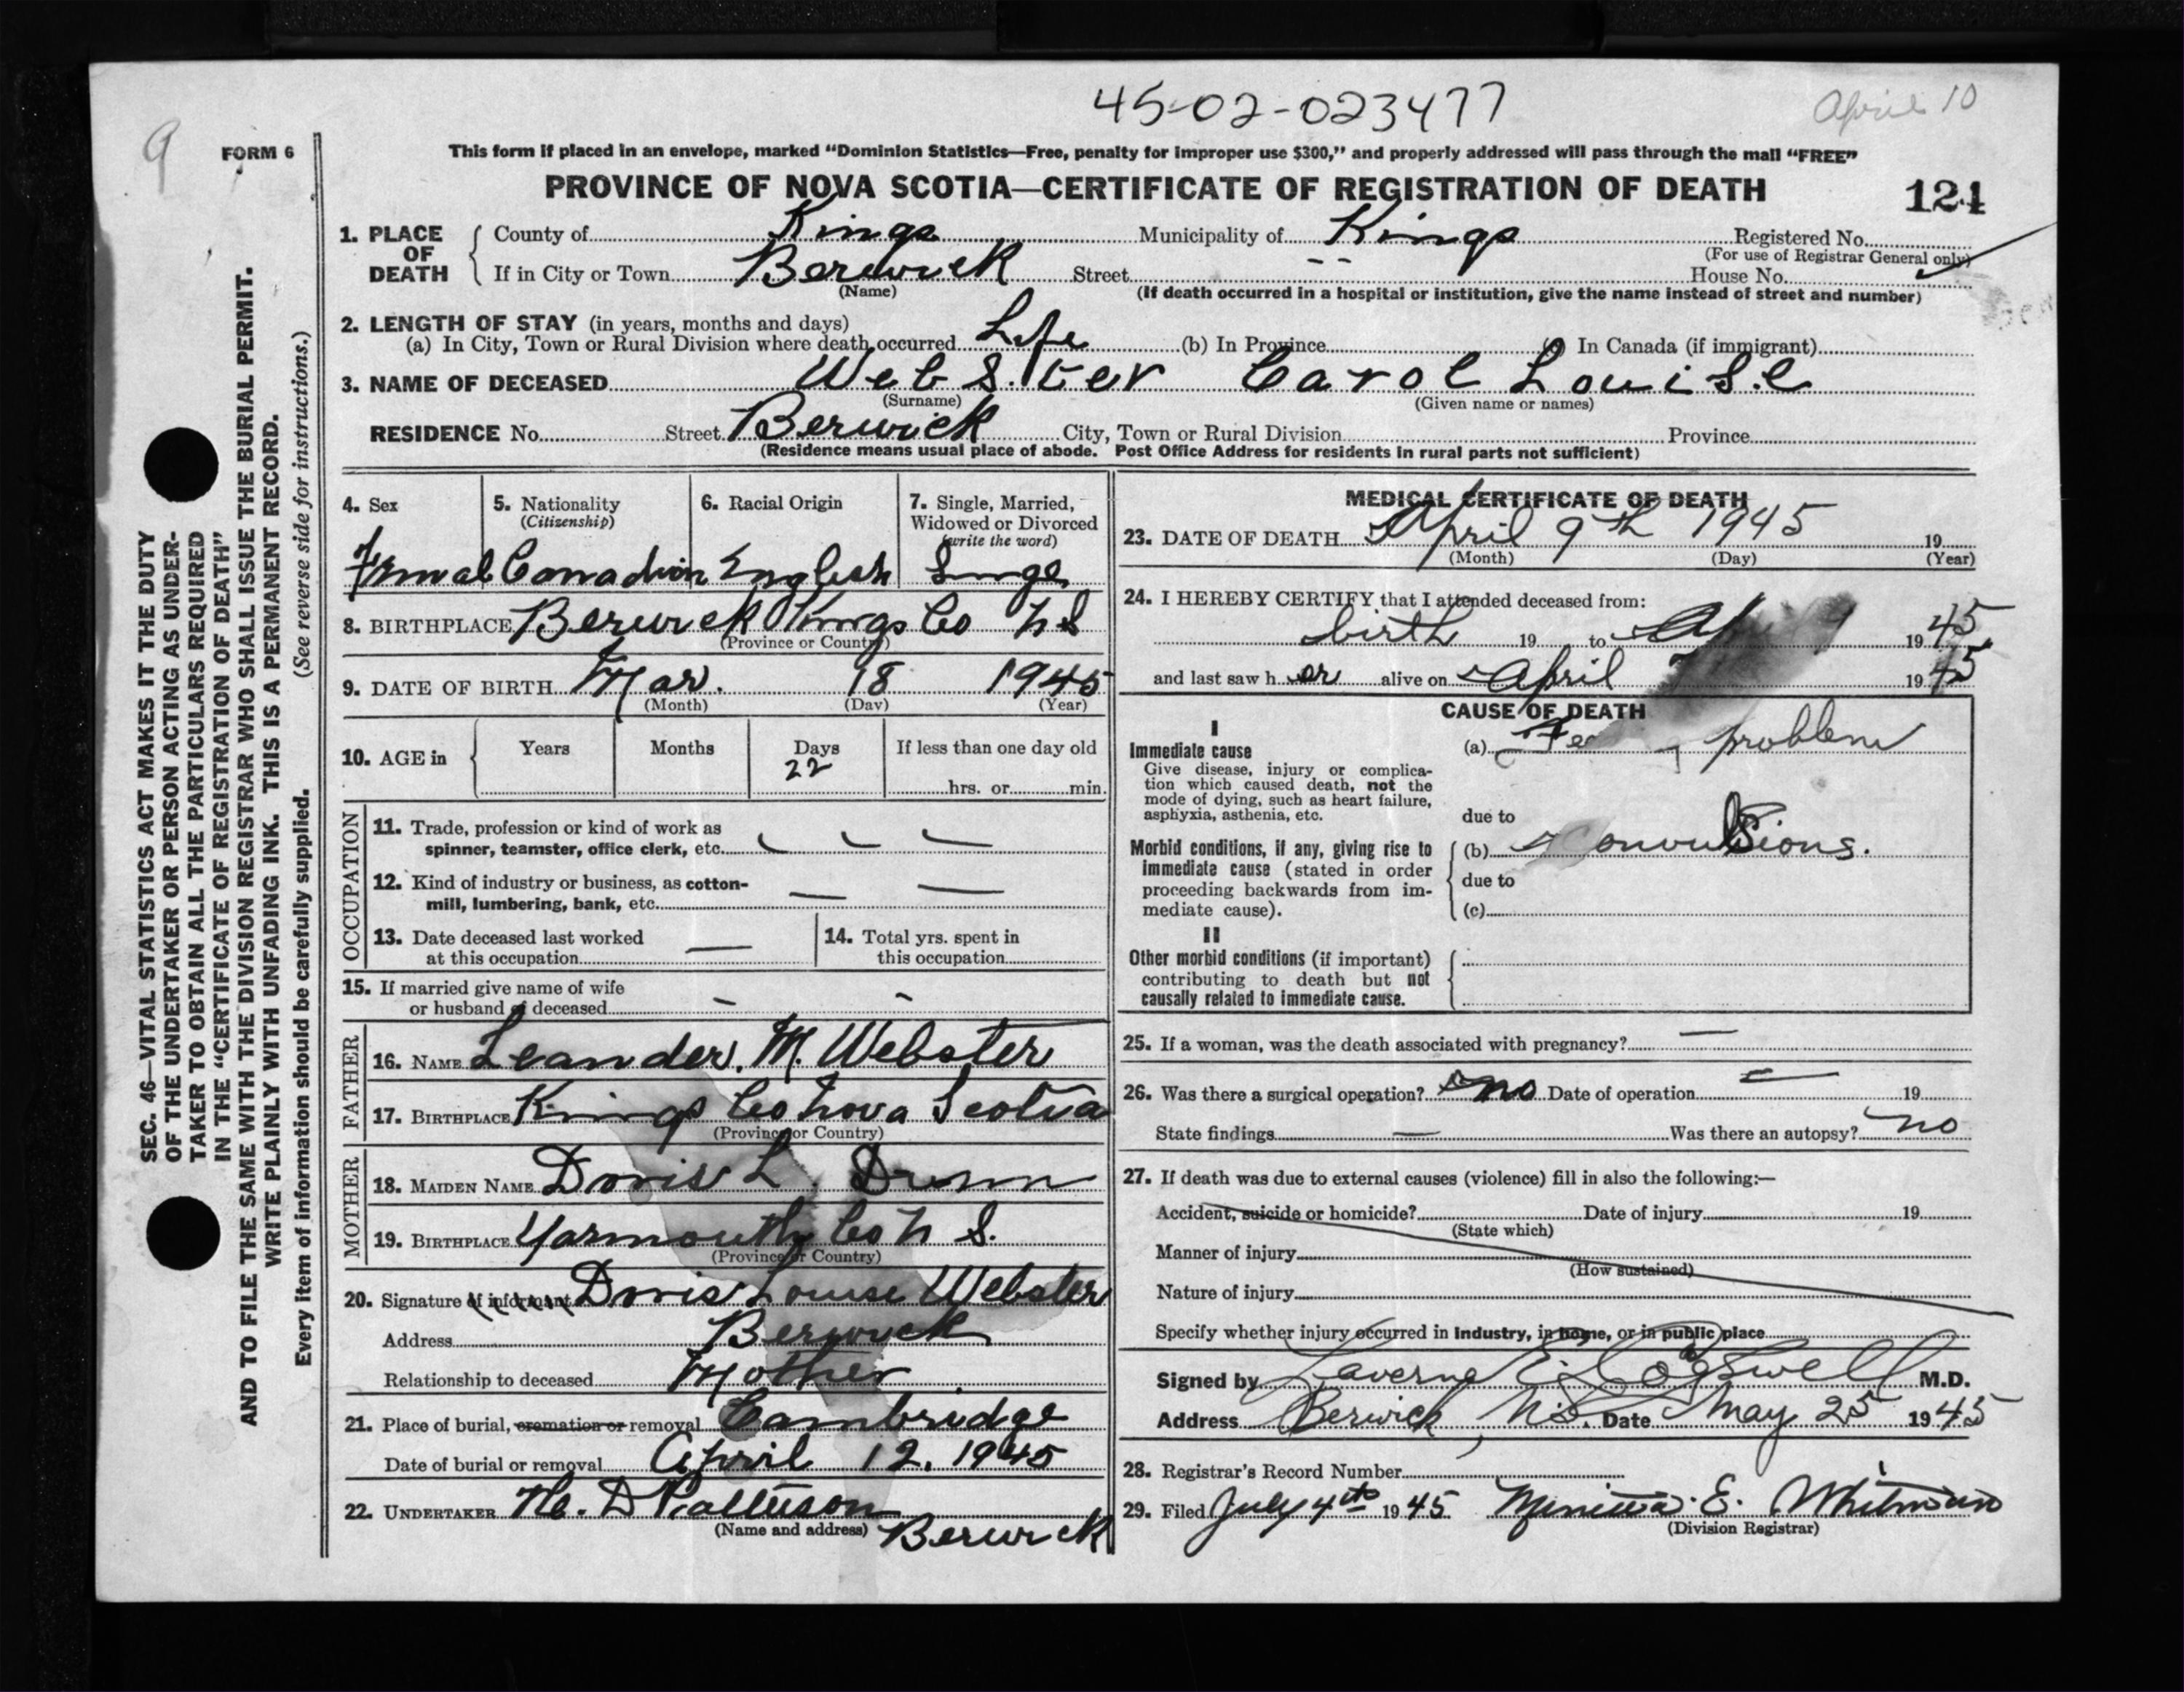 45-02-023477
April 10
9
FORM 6
This form if placed in an envelope, marked "Dominion Statistics—Free, penalty for improper use $300," and properly addressed will pass through the mail "FREE"
PROVINCE OF NOVA SCOTIA—CERTIFICATE OF REGISTRATION OF DEATH
124
1. PLACE OF DEATH
County of Kings Municipality of Kings Registered No.
(For use of Registrar General only)
If in City or Town Berwick Street House No.
(Name) (If death occurred in a hospital or institution, give the name instead of street and number)
2. LENGTH OF STAY (in years, months and days)
(a) In City, Town or Rural Division where death occurred Life (b) In Province (c) In Canada (if immigrant)
3. NAME OF DECEASED Webster Carol Louise
(Surname) (Given name or names)
RESIDENCE No. Street Berwick City, Town or Rural Division Province
(Residence means usual place of abode. Post Office Address for residents in rural parts not sufficient)
4. Sex
Femal
5. Nationality
(Citizenship)
Canadian
6. Racial Origin
English
7. Single, Married,
Widowed or Divorced
(write the word)
8. BIRTHPLACE Berwick Kings Co N S
(Province or Country)
9. DATE OF BIRTH Mar. 18 1945
(Month) (Day) (Year)
10. AGE in
Years Months Days If less than one day old
22
hrs. or min.
OCCUPATION
11. Trade, profession or kind of work as
spinner, teamster, office clerk, etc. — — —
12. Kind of industry or business, as cotton-
mill, lumbering, bank, etc. — —
13. Date deceased last worked
at this occupation —
14. Total yrs. spent in
this occupation
15. If married give name of wife
or husband of deceased - -
FATHER
16. NAME Leander. M. Webster
17. BIRTHPLACE Kings Co Nova Scotia
(Province or Country)
MOTHER
18. MAIDEN NAME Doris L. Dunn
19. BIRTHPLACE Yarmouth Co N S.
(Province or Country)
20. Signature of informant Doris Louise Webster
Address Berwick
Relationship to deceased Mother
21. Place of burial, cremation or removal Cambridge
Date of burial or removal April 12. 1945
22. UNDERTAKER D
(Name and address) Berwick
MEDICAL CERTIFICATE OF DEATH
23. DATE OF DEATH April 9th 1945 19
(Month) (Day) (Year)
24. I HEREBY CERTIFY that I attended deceased from:
birth 19 to 1945
and last saw her alive on April 1945
CAUSE OF DEATH
I
Immediate cause
Give disease, injury or complica-
tion which caused death, not the
mode of dying, such as heart failure,
asphyxia, asthenia, etc.
(a) problem
due to
Morbid conditions, if any, giving rise to
immediate cause (stated in order
proceeding backwards from im-
mediate cause).
(b) Convulsions.
due to
(c)
II
Other morbid conditions (if important)
contributing to death but not
causally related to immediate cause.
25. If a woman, was the death associated with pregnancy? —
26. Was there a surgical operation? no Date of operation — 19
State findings — Was there an autopsy? no
27. If death was due to external causes (violence) fill in also the following:—
Accident, suicide or homicide? Date of injury 19
(State which)
Manner of injury
(How sustained)
Nature of injury
Specify whether injury occurred in industry, in home, or in public place
Signed by Laverne E. Cogswell M.D.
Address Berwick, N.S. Date May 25 1945
28. Registrar's Record Number
29. Filed July 4th 1945 E. Whitman
(Division Registrar)
SEC. 46—VITAL STATISTICS ACT MAKES IT THE DUTY
OF THE UNDERTAKER OR PERSON ACTING AS UNDER-
TAKER TO OBTAIN ALL THE PARTICULARS REQUIRED
IN THE "CERTIFICATE OF REGISTRATION OF DEATH"
AND TO FILE THE SAME WITH THE DIVISION REGISTRAR WHO SHALL ISSUE THE BURIAL PERMIT.
WRITE PLAINLY WITH UNFADING INK. THIS IS A PERMANENT RECORD.
Every item of information should be carefully supplied. (See reverse side for instructions.)